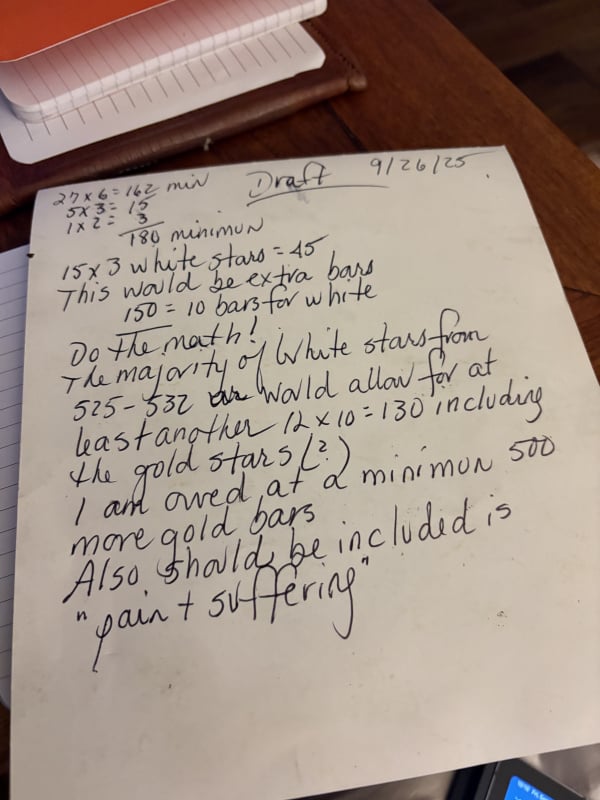 Draft 9/26/25
27 x 6 = 162 min
5 x 3 = 15
1 x 2 = 3
180 minimun
15 x 3 white stars = 45
This would be extra bars
150 = 10 bars for white
Do the math!
The majority of White stars from
525 - 532 would allow for at
least another 12 x 10 = 130 including
the gold stars (?)
I am owed at a minimun 500
more gold bars
Also should be included is
"pain + suffering"